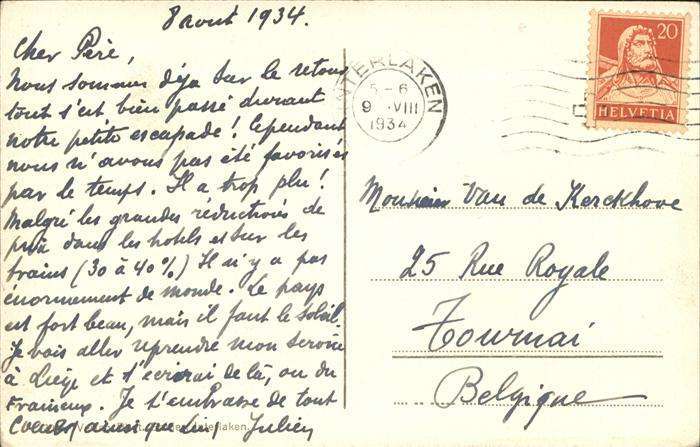 8 aout 1934.
Cher Père,
Nous sommes déja sur le retour
tout s'est bien passé durant
notre petite escapade! Cependant
nous n'avons pas été favorisés
par le temps. Il a trop plu!
Malgré les grandes réductions de
prix dans les hotels et sur les
trains (30 à 40%) Il n'y a pas
énormément de monde. Le pays
est fort beau, mais il faut le soleil.
Je vais aller reprendre mon service
à Liège et t'ecrirai de là, ou de
Frameries. Je t'embrasse de tout
Coeur, ainsi que Julien
Interlaken.
INTERLAKEN
5-6
9 VIII
1934
20
HELVETIA
Monsieur Van de Kerckhove
25 Rue Royale
Tournai
Belgique